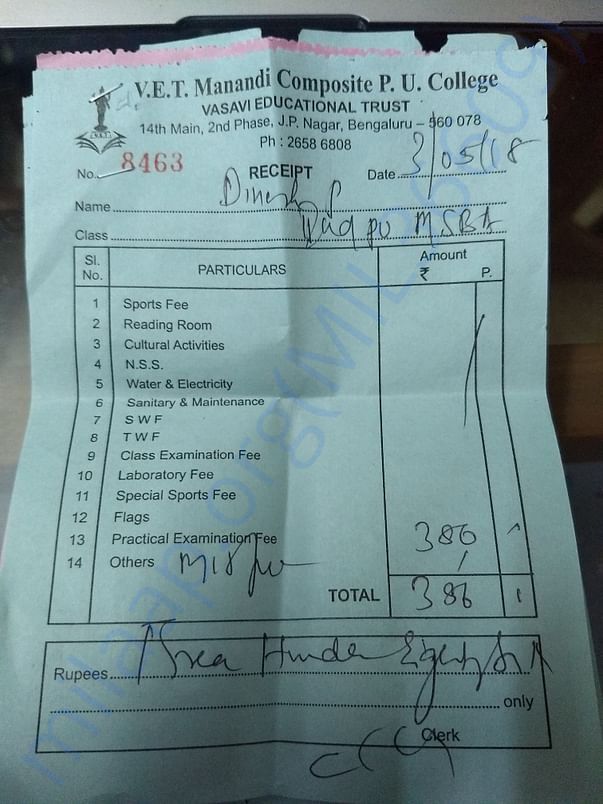 V.E.T. Manandi Composite P. U. College
VASAVI EDUCATIONAL TRUST
14th Main, 2nd Phase, J.P. Nagar, Bengaluru – 560 078
Ph : 2658 6808
No. 8463 RECEIPT Date 3/05/18
Name Dinesh
Class PU MSBA
Sl. No. PARTICULARS Amount ₹ P.
1 Sports Fee
2 Reading Room
3 Cultural Activities
4 N.S.S.
5 Water & Electricity
6 Sanitary & Maintenance
7 S W F
8 T W F
9 Class Examination Fee
10 Laboratory Fee
11 Special Sports Fee
12 Flags
13 Practical Examination Fee 386
14 Others
TOTAL 386
Rupees Three Hundred Eighty Six
only
Clerk
milaap.org